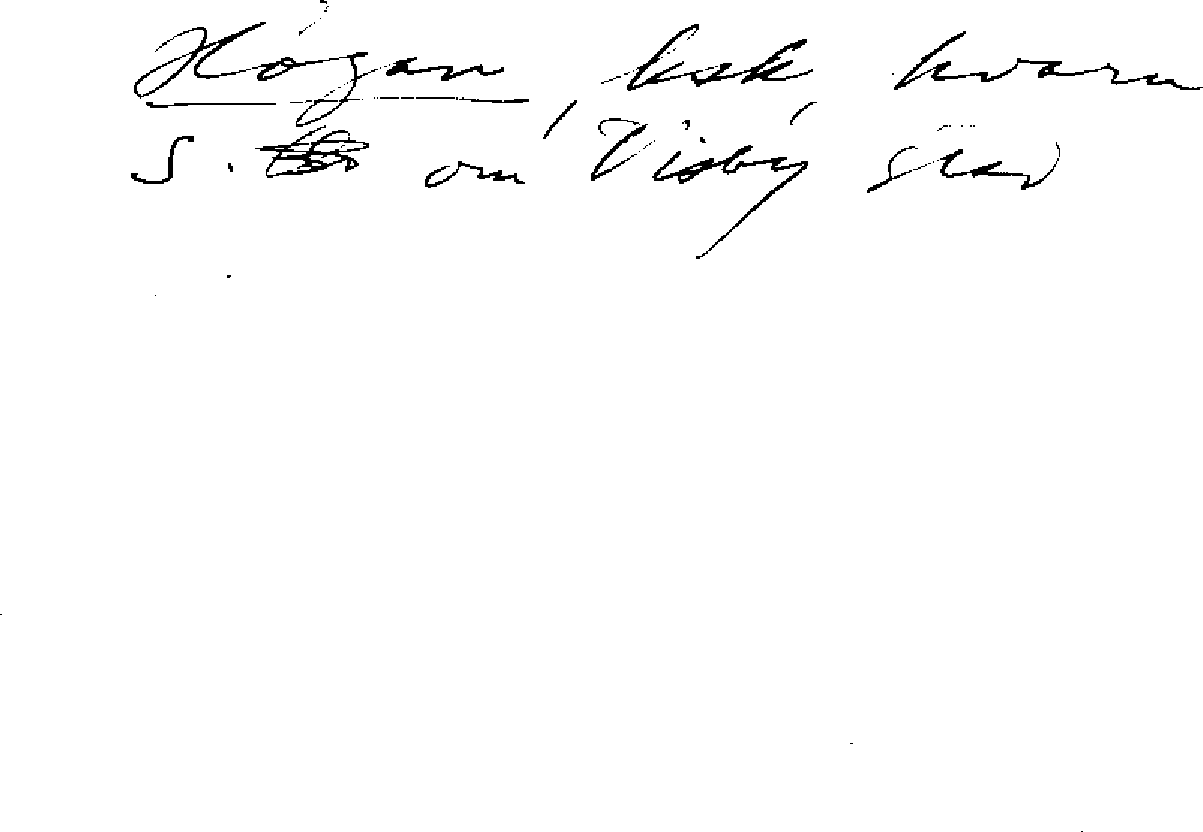 Högan, ksk, hvarn
S. om Visby stad